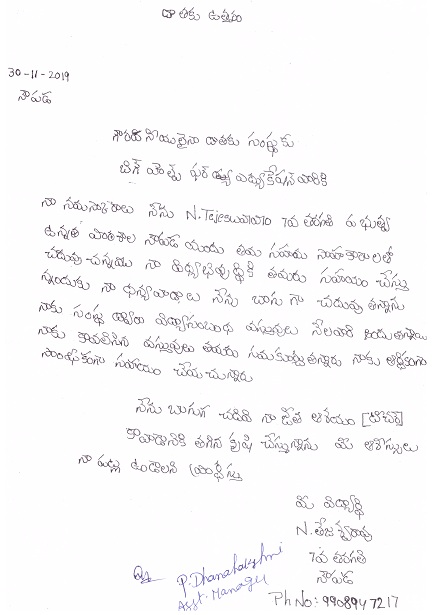 దాతకు ఉత్తరం
30-11-2019
నౌపడ
గౌరవనీయులైనా దాతకు సంస్థకు
బిగ్ హెల్ప్ ఫర్ ఎడ్యుకేషన్ వారికి
నా నమస్కారాలు నేను N.Tejeswararao 7వ తరగతి ప్రభుత్వ
ఉన్నత పాఠశాల నౌపడ యందు తమ సహయ సహకారాలతో
చదువు చున్నాను నా విద్యాభివృద్ధికి తమరు సహాయం చేస్తు
న్నందుకు నా ధన్యవాదాలు నేను బాగా చదువుతున్నాను
నాకు సంస్థ ద్వారా విద్యాసంబంధ వస్తువులు నేలవారి అందుతున్నాయి
నాకు కావలిసిన వస్తువులు తమరు సమకురుస్తున్నారు నాకు ఆర్థికంగా
సాంఘీకంగా సహాయం చేయుచున్నారు
నేను బాగుగా చదివి నా జీవిత ఆశయం [టీచర్]
కావడానికి తగిన కృషి చేస్తున్నాను మీ ఆశీస్సులు
నా పట్ల ఉండాలని ప్రార్థిస్తు
మీ విద్యార్థి
N.తేజేశ్వరరావు
7వ తరగతి
నౌపడ
P.Dhanalakshmi
Asst. Manager
Ph No: 9908947217